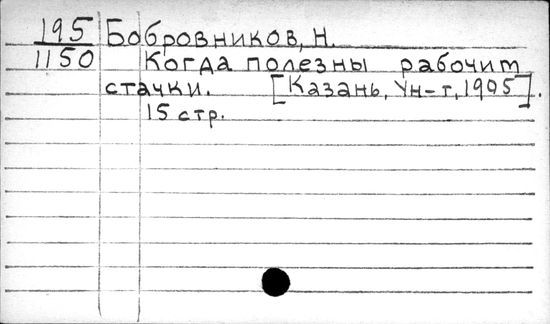 195 Бобровников, Н.
1150 Когда полезны рабочим
стачки. [Казань, Ун-т, 1905].
15 стр.